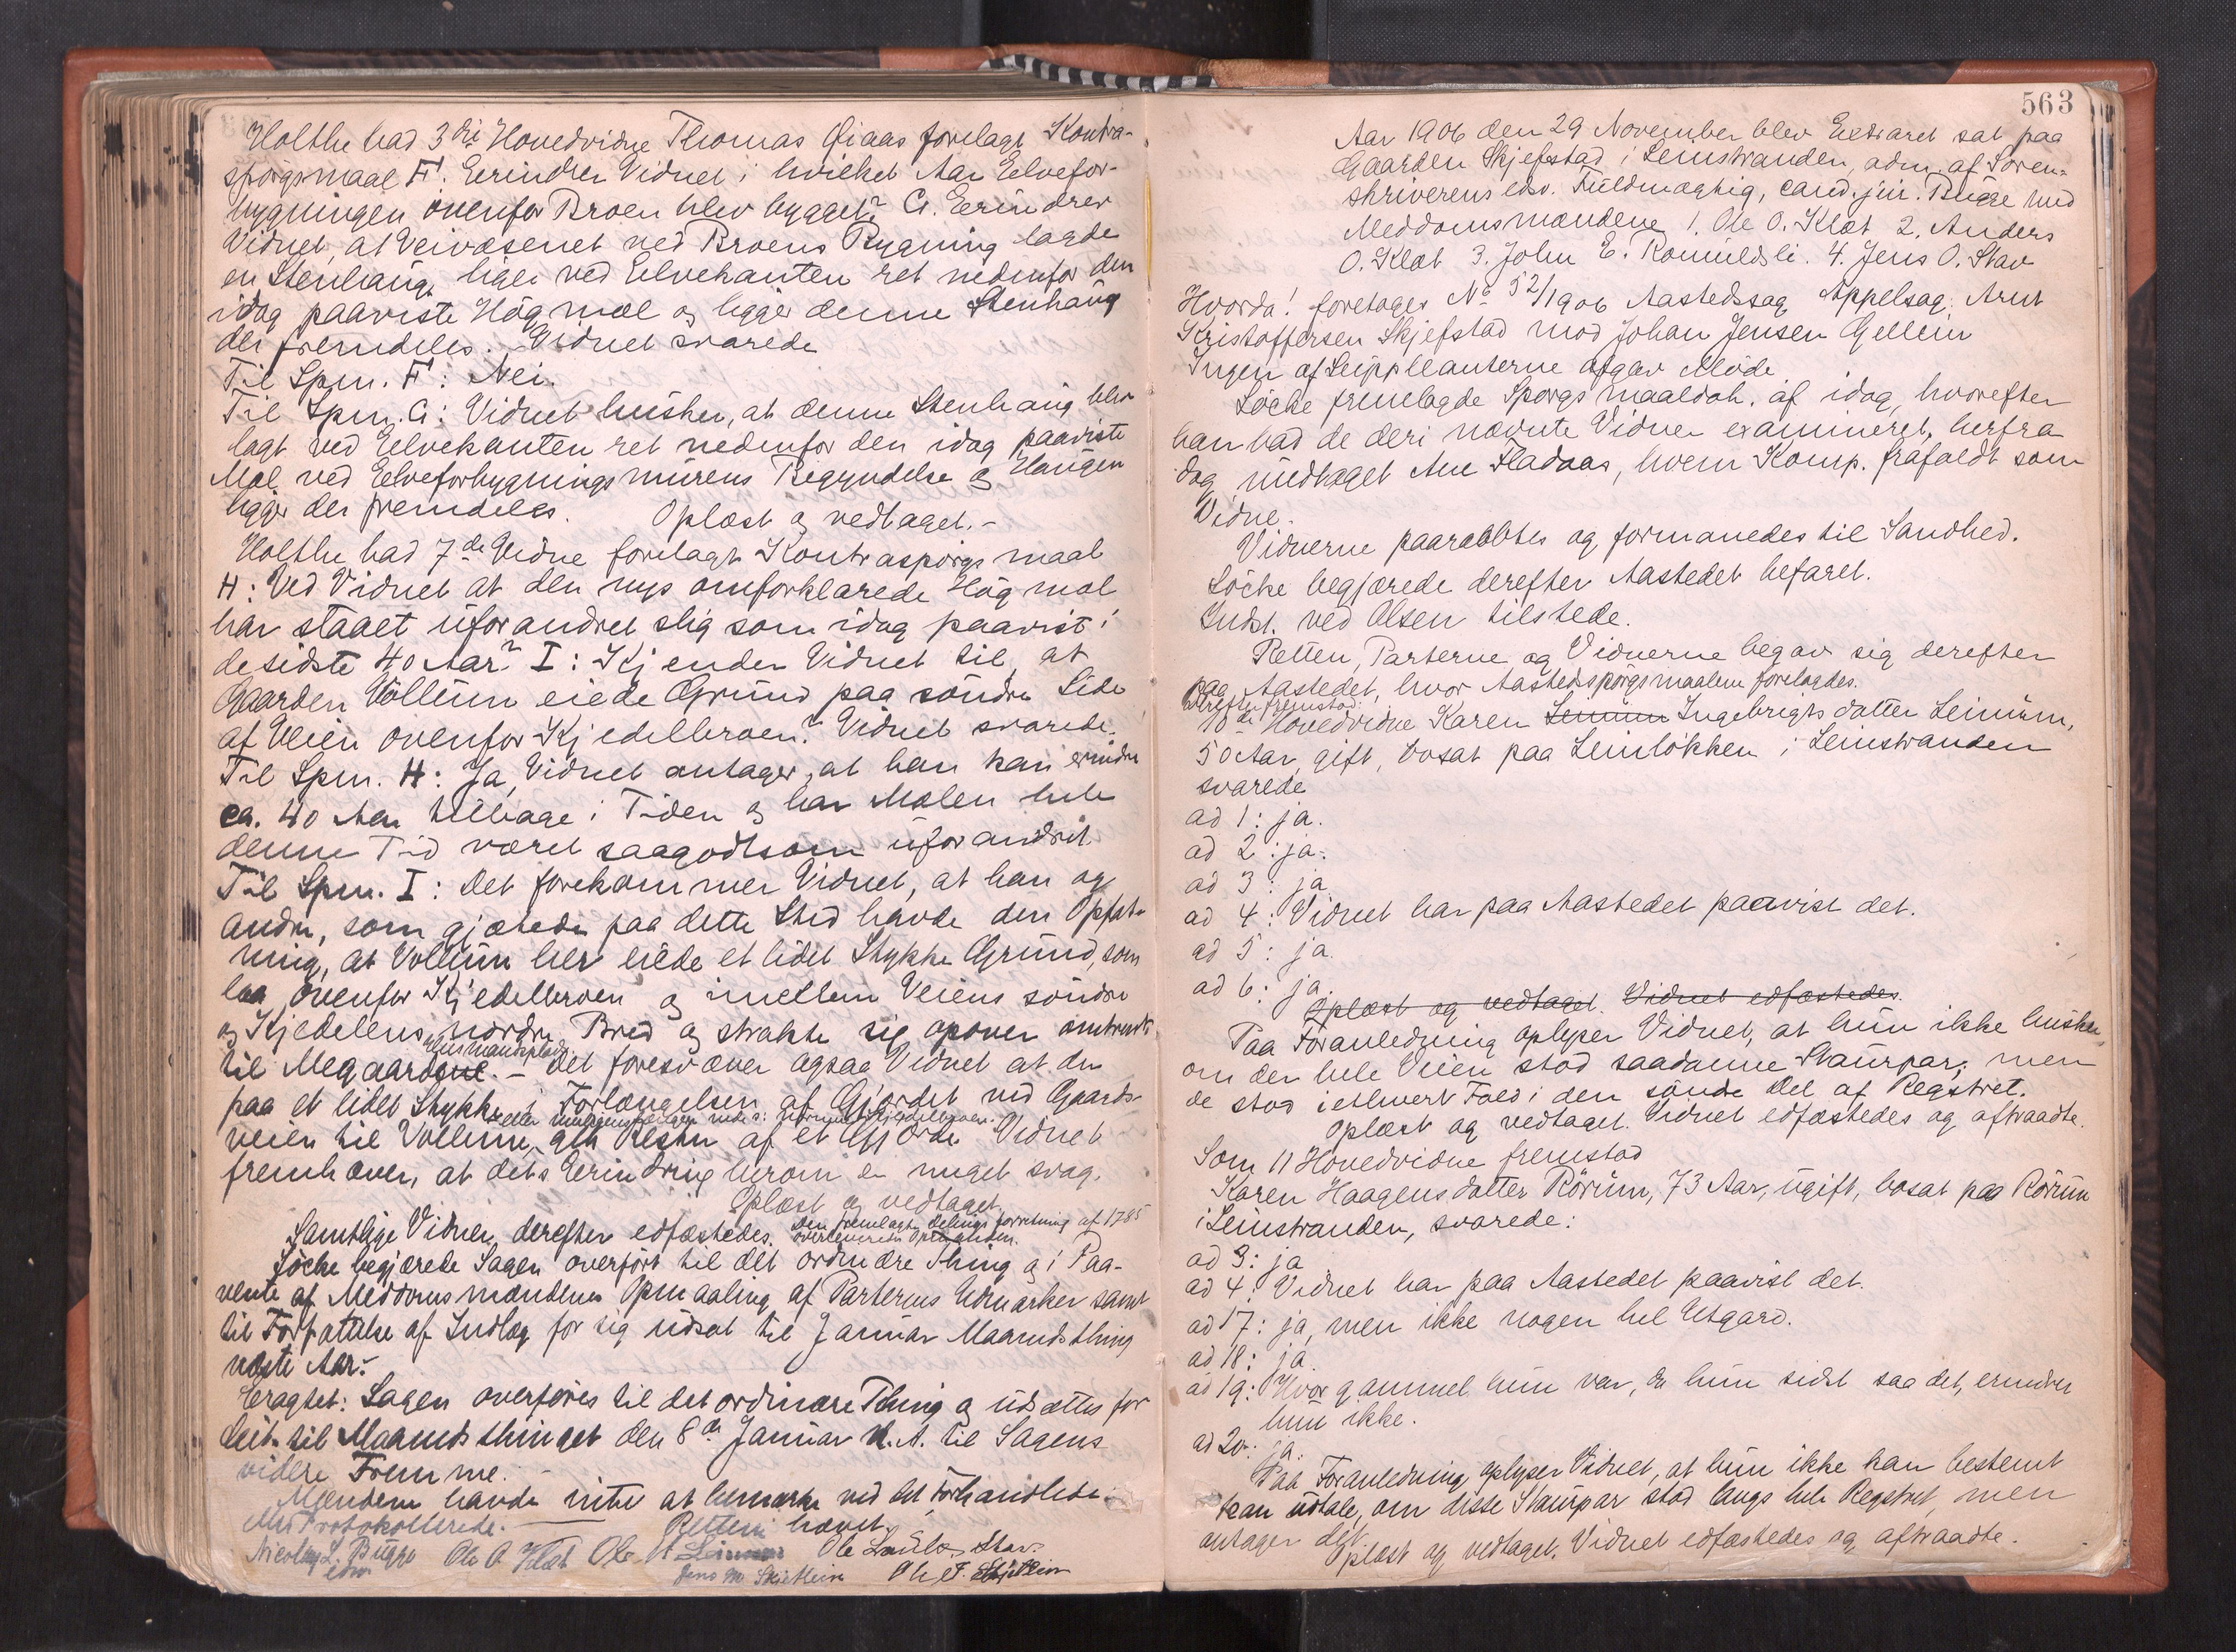 Holthe bad 3die Hovedvidne Thomas Qiaas forelagt Kontra-
spørgsmaal F. Erindrer Vidnet i hvilket Aar Elvefor-
bygningen ovenfor Broen blev bygget? G. Erindrer
Vidnet, at Veivæsenet ved Broens Bygning lagde
en Stenhaug lige ved Elvekanten ret nedenfor den
idag paaviste Høgmæl og ligger denne Stenhaug
der fremdeles. Vidnet svarede
Til Spm. F: Nei.
Til Spm. G: Vidnet husker, at denne Stenhaug blev
lagt ved Elvekanten ret nedenfor den idag paaviste
Mæl ved Elveforbygningsmurens Begyndelse og Haugen
ligger der fremdeles. Oplæst og vedtaget.-
Holthe bad 7de Vidne forelagt Kontraspørgsmaal
H: Ved Vidnet at den nys omforklarede Høgmæl
har staaet uforandret slig som idag paavist i
de sidste 40 Aar? I: Kjender Vidnet til, at
Gaarden Vollum eiede Grund paa søndre Side
af Veien ovenfor Kjedelbroen? Vidnet svarede.
Til Spm. H: Ja, Vidnet antager, at han kan erindre
ca. 40 Aar tilbage i Tiden og har Mælen hele
denne Tid været saagodtsom uforandret.
Til Spm. I: Det forekommer Vidnet, at han og
andre, som gjætede paa dette Sted havde den Opfat-
ning, at Vollum her eiede et lidet Stykke Grund, som
laa ovenfor Kjedelbroen og imellem Veiens søndre
og Kjedelens nordre Bred og strakte sig opover omtrent
til Megaardsne. - Det foresvæver ogsaa Vidnet at der
husmandsplads
paa et lidet Stykke i Forlængelsen af Gjærdet ved Gaards-
veien til Vollum, gik Rester af et Gjærde. Vidnet
fremhæver, at dets Erindring herom er meget svag.
Oplæst og vedtaget.
Samtlige Vidner derefter edfæstedes. Den fremlagte Delingsforretning af 1785
overleveredes Opmanden.
Löcke begjærede Sagen overført til det ordinære Thing og i Paa-
vente af Meddomsmændenes Opmaaling af Parternes Udmarker samt
til Forfattelse af Indlæg for sig udsat til Januar Maanedsthing
næste Aar.-
Eragtet: Sagen overføres til det ordinære Thing og udsættes for
Leir. til Maanedsthinget den 8de Januar n. A. til Sagens
videre Fremme.
Mændene havde intet at bemærke ved det Forhandlede.
Protokollerede. Retten hævet.
Nicolay L. Bugge Ole O Klæt Ole Ole Stav.
edsv Jens M Skjetlein Ole F. Skjetlein
563
Aar 1906 den 29 November blev Extraret sat paa
Gaarden Skjefstad i Leinstranden, adm. af Soren-
skriverens edsv. Fuldmægtig, cand. jur. Bugge med
Meddomsmændene 1. Ole O. Klæt 2. Anders
O. Klæt 3. John E. Romuldsli. 4. Jens O. Stav
Hvorda! foretages No 52/1906 Aastedssag Appelsag. Arnt
Kristoffersen Skjefstad mod Johan Jensen Gellein
Ingen af Supplleanterne afgav Møde
Löcke fremlagde Spørgsmaaldok. af idag, hvorefter
han bad de deri nævnte Vidner examineret, herfra
dog undtaget Ane Fladaas, hvem Komp. frafaldt som
Vidne.
Vidnerne paaraabtes og formanedes til Sandhed.
Löcke begjærede derefter Aastedet befaret.
Indst. ved Olsen tilstede.
Retten, Parterne og Vidnerne begav sig derefter
paa Aastedet, hvor Aastedsspørgsmaalene forelagdes.
Derefter fremstod:
10de Hovedvidne Karen Leinum Ingebrigtsdatter Leinum,
50 Aar, gift, bosat paa Leinløkken i Leinstranden
svarede
ad 1: ja.
ad 2: ja.
ad 3: ja
ad 4: Vidnet har paa Aastedet paavist det.
ad 5: ja.
ad 6: ja.
Oplæst og vedtaget. Vidnet edfæstedes.
Paa Foranledning oplyser Vidnet, at hun ikke husker,
om der hele Veien stod saadanne Staurpar, men
de stod iethvert Fald i den søndre Del af Regstret.
Oplæst og vedtaget. Vidnet edfæstedes og aftraadte.
Som 11 Hovedvidne fremstod
Karen Haagensdatter Rørum, 73 Aar, ugift, bosat paa Rørum
i Leinstranden, svarede:
ad 3: ja
ad 4: Vidnet har paa Aastedet paavist det.
ad 17: ja, men ikke nogen hel Utgard.
ad 18: ja.
ad 19: Hvor gammel hun var, da hun sidst saa det, erindrer
hun ikke.
ad 20: ja.
Paa Foranledning oplyser Vidnet, at hun ikke kan bestemt
kan udtale, om disse Staurpar stod langs hele Regstret, men
antager det.
Oplæst og vedtaget. Vidnet edfæstedes og aftraadte.